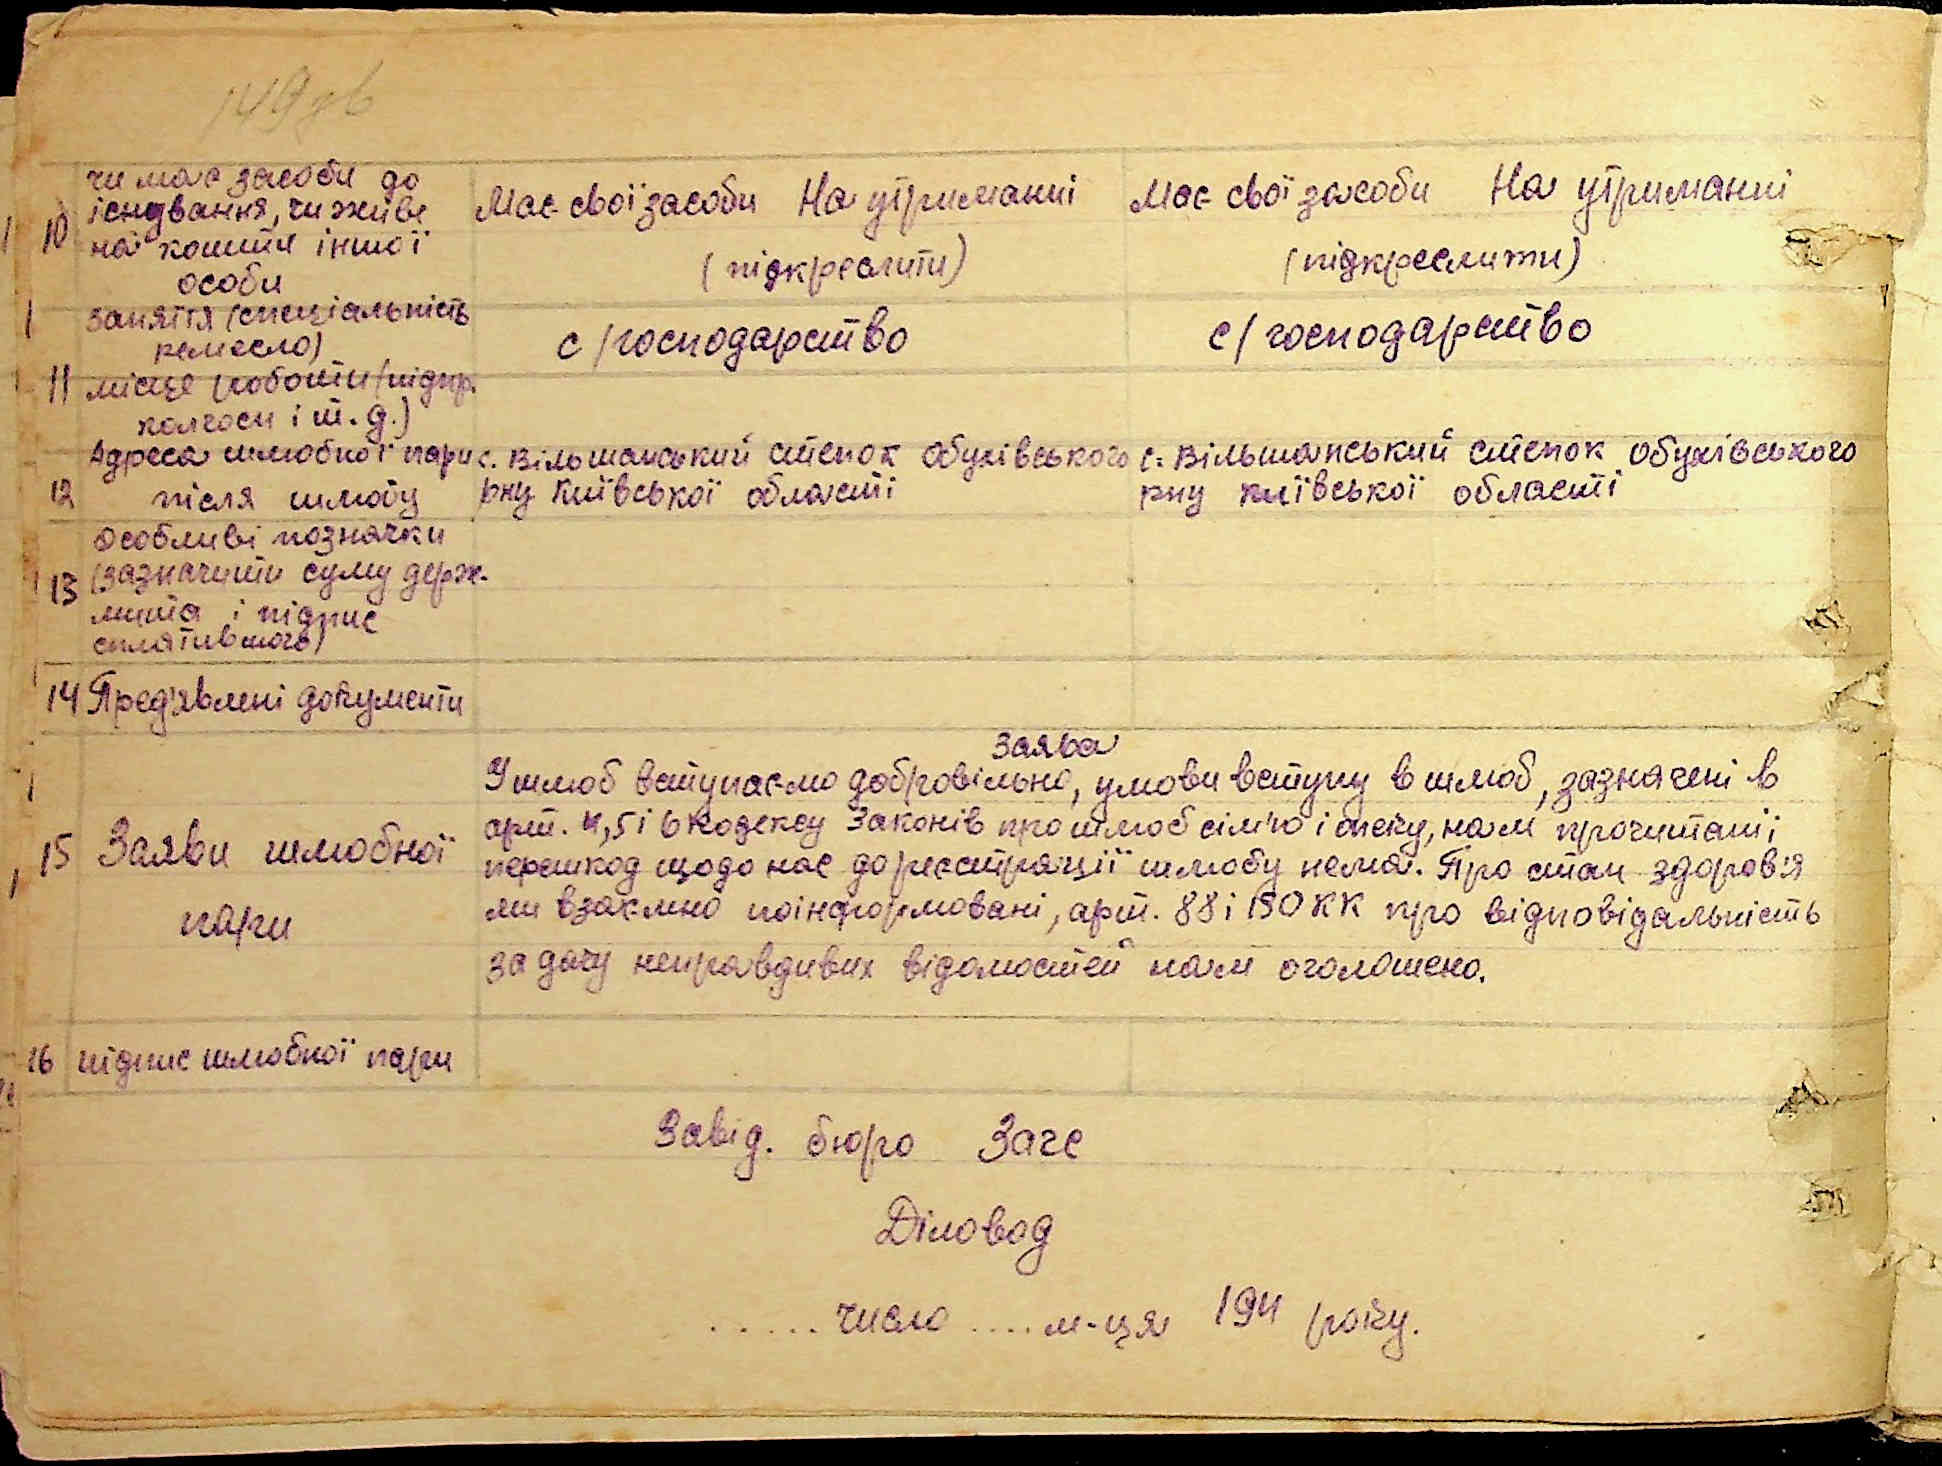 149 зв
10 чи має засоби до
існування, чи живе
на кошти іншої
особи
Має свої засоби На утриманні
(підкреслити)
Має свої засоби На утриманні
(підкреслити)
11 заняття (спеціальність
ремесло)
місце роботи (підпр.
колгосп і т. д.)
с/господарство
с/господарство
12 Адреса шлюбної пари
після шлюбу
с. Вільшанський степок Обухівського
рну Київської області
с. Вільшанський степок Обухівського
рну Київської області
13 Особливі позначки
(зазначити суму держ-
мита і підпис
сплатившого)
14 Пред'явлені документи
15 Заяви шлюбної
пари
Заява
У шлюб вступаємо добровільно, умови вступу в шлюб, зазначені в
арт. 4,5 і 6 Кодексу Законів про шлюб сім'ю і опеку, нам прочитані і
перешкод щодо нас до реєстрації шлюбу нема. Про стан здоров'я
ми взаємно поінформовані, арт. 88 і 190 КК про відповідальність
за дачу неправдивих відомостей нам оголошено.
16 підпис шлюбної пари
Завід. бюро Загс
Діловод
..... число .... м-ця 194 року.